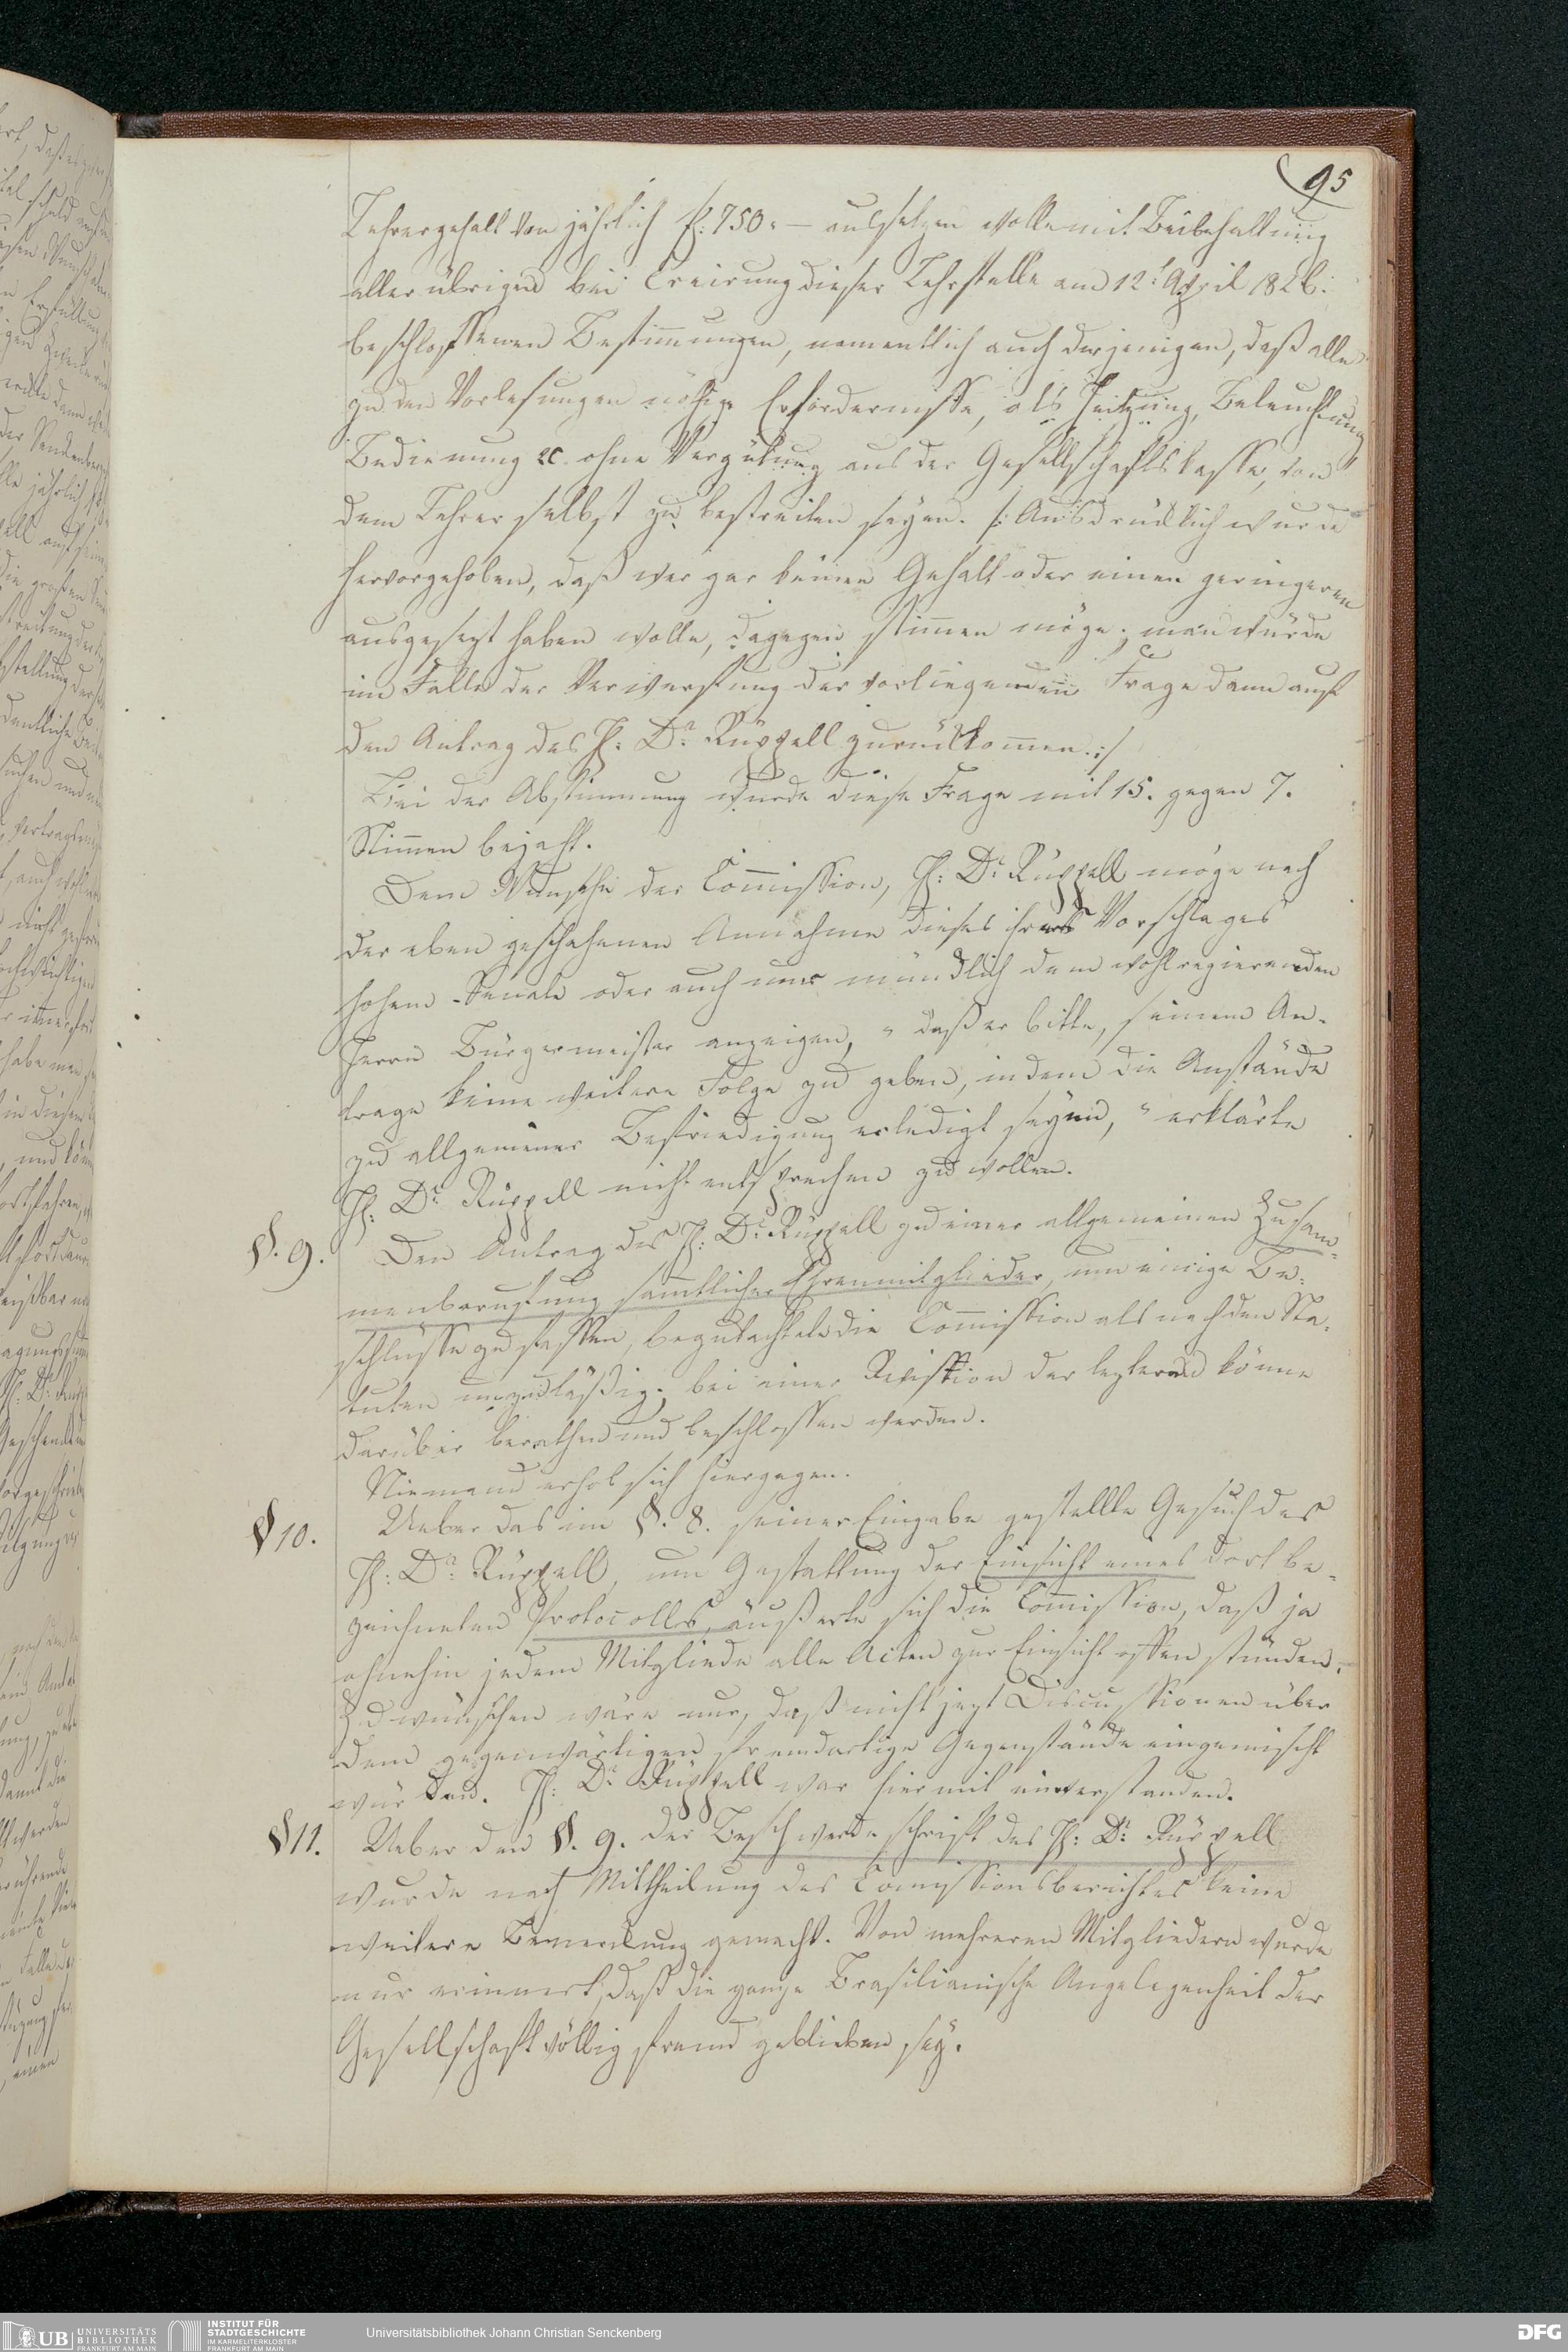 95
Lehrergehalt von jährlich f: 750.— aussetzen wolle mit Beibehaltung
aller übrigen bei Creirung dieser Lehrstelle am 12.t April 1826.
beschlossenen Bestim̄ungen, namentlich auch derjenigen, daß alle
zu den Vorlesungen nöthige Erfordernisse, als Heitzung, Beleuchtung
Bedienung ꝛc. ohne Vergütung aus der Gesellschaftskasse, von
dem Lehrer selbst zu bestreiten seyen. /: Ausdrücklich wurde
hervorgehoben, daß wer gar keinen Gehalt oder einen geringeren
ausgesezt haben wolle, dagegen stim̄en möge; man würde
im Falle der Verwerfung der vorliegenden Frage dann auf
den Antrag des H: Dr. Rüppell zurückkom̄en. :/
Bei der Abstimmung wurde diese Frage mit 15. gegen 7.
Stim̄en bejaht.
Dem Wunsche der Com̄ission, H: Dr. Rüppell möge nach
der eben geschehenen Annahme dieses ihres Vorschlages
hohem Senate oder auch nur mündlich dem wohlregierenden
Herrn Bürgermeister anzeigen, „daß er bitte, seinem An-
trage keine weitere Folge zu geben, indem die Anstände
zu allgemeiner Befriedigung erledigt seyen," erklärte
H: Dr. Rüppell nicht entsprechen zu wollen.
§. 9. Den Antrag des H: Dr. Rüppell zu einer allgemeinen Zusam-
menberufung sämtlicher Ehrenmitglieder, um einige Be-
schlüsse zu fassen, begutachtete die Com̄ission als nach den Sta-
tuten unzuläßig; bei einer Revission der lezteren könne
darüber berathen und beschlossen werden.
Niemand erhob sich hiergegen.
§ 10. Ueber das im §. 8. seiner Eingabe gestellte Gesuch des
H: Dr. Rüppell, um Gestattung der Einsicht eines dort be-
zeichneten Protocolls, äußerte sich die Com̄ission, daß ja
ohnehin jedem Mitgliede alle Acten zur Einsicht offen stünden.
Zu wünschen wäre nur, daß nicht jezt Discussionen über
dem gegenwärtigen fremdartige Gegenstände eingemischt
würden. H: Dr. Rüppell war hiermit einverstanden.
§ 11. Ueber den §. 9. der Beschwerdeschrift des H: Dr. Rüppell
wurde nach Mittheilung des Com̄issionsberichtes keine
weitere Bemerkung gemacht. Von mehreren Mitgliedern wurde
nur erinnert, daß die ganze Brasilianische Angelegenheit der
Gesellschaft völlig fremd geblieben sey.
UB UNIVERSITÄTS
BIBLIOTHEK
FRANKFURT AM MAIN
INSTITUT FÜR
STADTGESCHICHTE
IM KARMELITERKLOSTER
FRANKFURT AM MAIN
Universitätsbibliothek Johann Christian Senckenberg
DFG